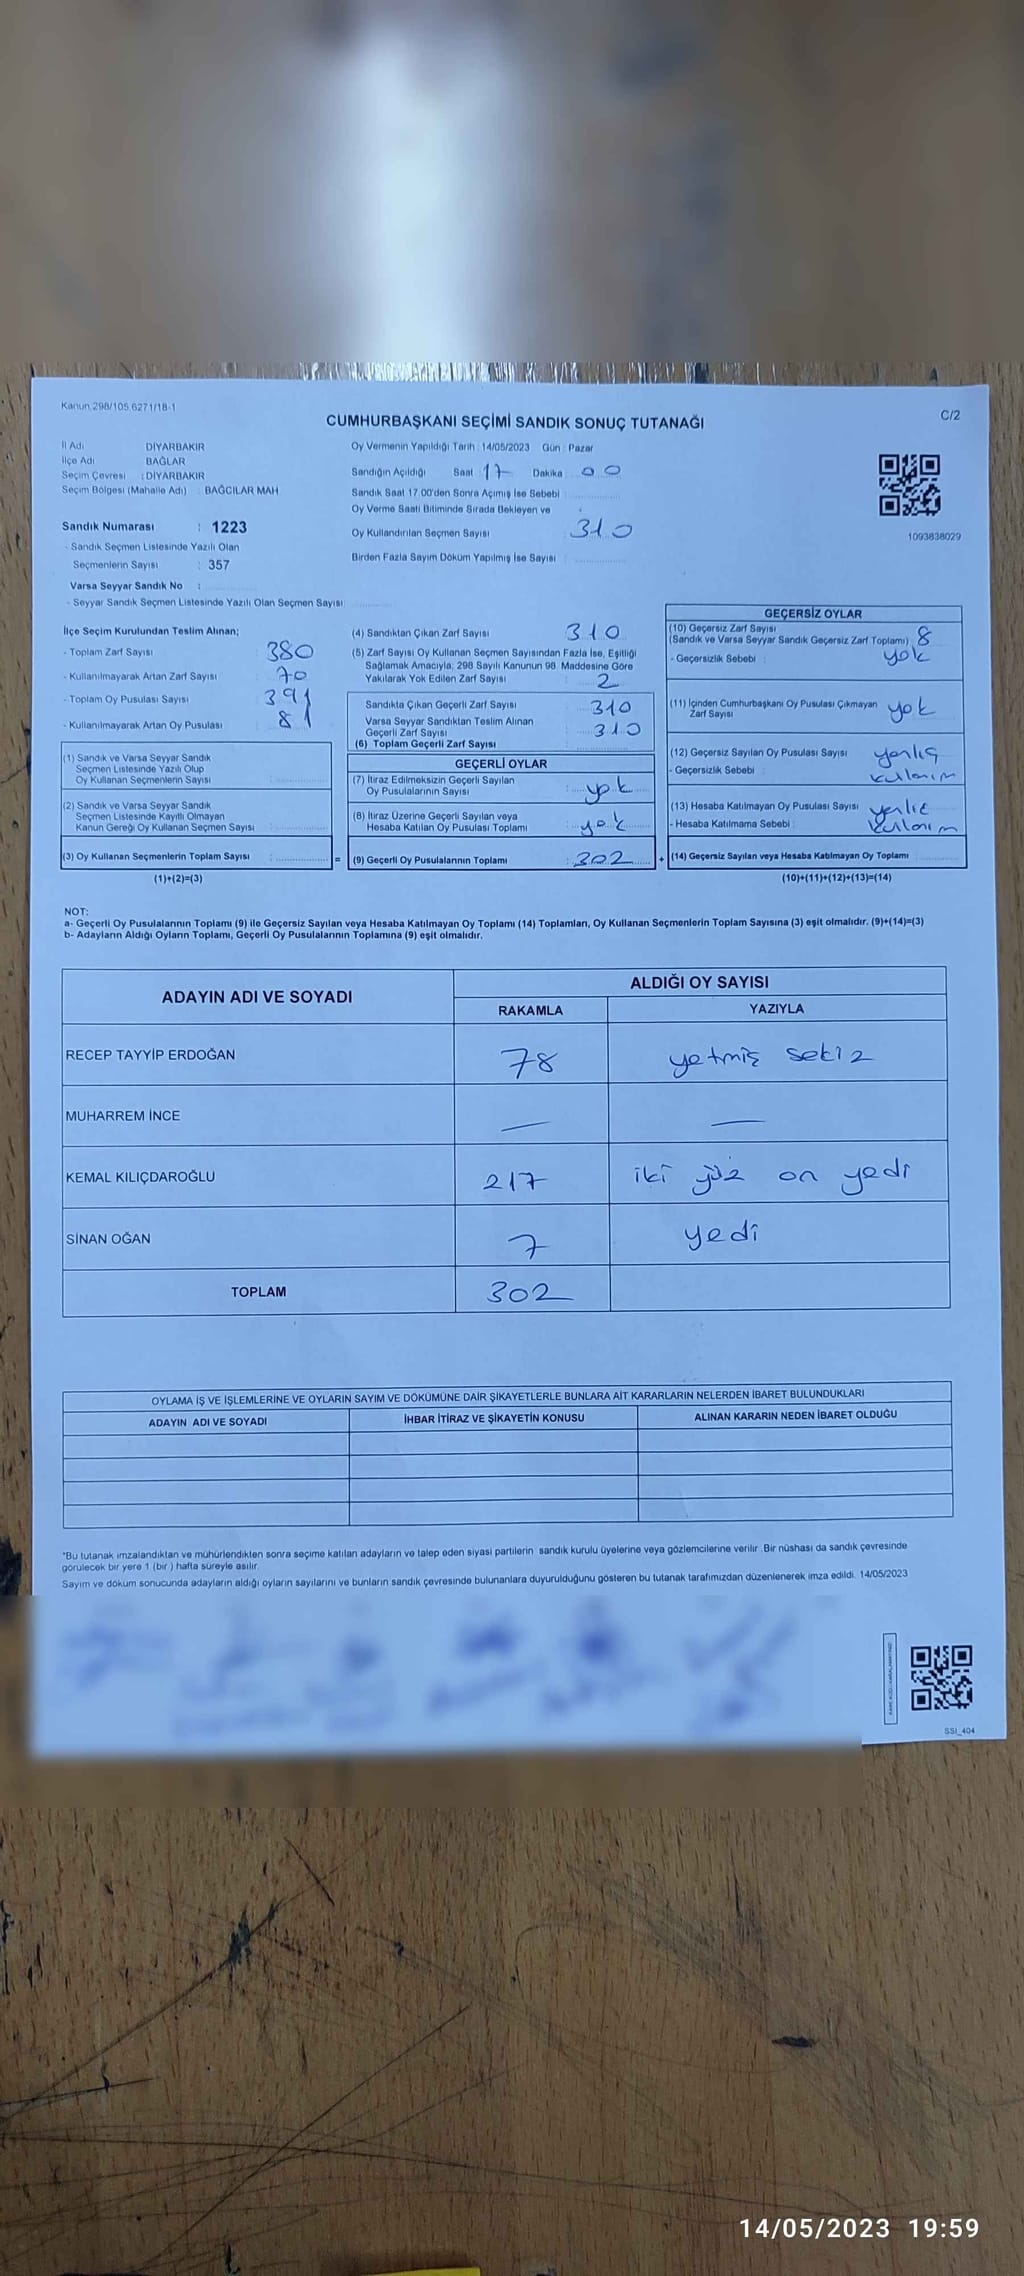 Kanun 298/105 6271/18-1
C/2
CUMHURBAŞKANI SEÇİMİ SANDIK SONUÇ TUTANAĞI
İl Adı DİYARBAKIR
İlçe Adı BAĞLAR
Seçim Çevresi : DİYARBAKIR
Seçim Bölgesi (Mahalle Adı) : BAĞCILAR MAH
Sandık Numarası : 1223
- Sandık Seçmen Listesinde Yazılı Olan
Seçmenlerin Sayısı : 357
Varsa Seyyar Sandık No :
- Seyyar Sandık Seçmen Listesinde Yazılı Olan Seçmen Sayısı
Oy Vermenin Yapıldığı Tarih : 14/05/2023 Gün : Pazar
Sandığın Açıldığı Saat 17 Dakika 00
Sandık Saat 17.00'den Sonra Açımış İse Sebebi
Oy Verme Saati Bitiminde Sırada Bekleyen ve
Oy Kullandırılan Seçmen Sayısı 310
Birden Fazla Sayım Döküm Yapılmış İse Sayısı
1093838029
İlçe Seçim Kurulundan Teslim Alınan;
- Toplam Zarf Sayısı 380
- Kullanılmayarak Artan Zarf Sayısı 70
- Toplam Oy Pusulası Sayısı 391
- Kullanılmayarak Artan Oy Pusulası 81
(1) Sandık ve Varsa Seyyar Sandık
Seçmen Listesinde Yazılı Olup
Oy Kullanan Seçmenlerin Sayısı
(2) Sandık ve Varsa Seyyar Sandık
Seçmen Listesinde Kayıtlı Olmayan
Kanun Gereği Oy Kullanan Seçmen Sayısı
(3) Oy Kullanan Seçmenlerin Toplam Sayısı
=
(1)+(2)=(3)
(4) Sandıktan Çıkan Zarf Sayısı 310
(5) Zarf Sayısı Oy Kullanan Seçmen Sayısından Fazla İse, Eşitliği
Sağlamak Amacıyla; 298 Sayılı Kanunun 98. Maddesine Göre
Yakılarak Yok Edilen Zarf Sayısı 2
Sandıkta Çıkan Geçerli Zarf Sayısı 310
Varsa Seyyar Sandıktan Teslim Alınan
Geçerli Zarf Sayısı 310
(6) Toplam Geçerli Zarf Sayısı
GEÇERLİ OYLAR
(7) İtiraz Edilmeksizin Geçerli Sayılan
Oy Pusulalarının Sayısı yok
(8) İtiraz Üzerine Geçerli Sayılan veya
Hesaba Katılan Oy Pusulası Toplamı yok
(9) Geçerli Oy Pusulalarının Toplamı : 302
+
GEÇERSİZ OYLAR
(10) Geçersiz Zarf Sayısı
(Sandık ve Varsa Seyyar Sandık Geçersiz Zarf Toplamı) 8
- Geçersizlik Sebebi : yok
(11) İçinden Cumhurbaşkanı Oy Pusulası Çıkmayan
Zarf Sayısı yok
(12) Geçersiz Sayılan Oy Pusulası Sayısı yanlış
- Geçersizlik Sebebi kullanım
(13) Hesaba Katılmayan Oy Pusulası Sayısı
- Hesaba Katılmama Sebebi
(14) Geçersiz Sayılan veya Hesaba Katılmayan Oy Toplamı
(10)+(11)+(12)+(13)=(14)
NOT:
a- Geçerli Oy Pusulalarının Toplamı (9) ile Geçersiz Sayılan veya Hesaba Katılmayan Oy Toplamı (14) Toplamları, Oy Kullanan Seçmenlerin Toplam Sayısına (3) eşit olmalıdır. (9)+(14)=(3)
b- Adayların Aldığı Oyların Toplamı, Geçerli Oy Pusulalarının Toplamına (9) eşit olmalıdır.
ADAYIN ADI VE SOYADI
ALDIĞI OY SAYISI
RAKAMLA YAZIYLA
RECEP TAYYİP ERDOĞAN 78 yetmiş sekiz
MUHARREM İNCE — —
KEMAL KILIÇDAROĞLU 217 iki yüz on yedi
SİNAN OĞAN 7 yedi
TOPLAM 302
OYLAMA İŞ VE İŞLEMLERİNE VE OYLARIN SAYIM VE DÖKÜMÜNE DAİR ŞİKAYETLERLE BUNLARA AİT KARARLARIN NELERDEN İBARET BULUNDUKLARI
ADAYIN ADI VE SOYADI İHBAR İTİRAZ VE ŞİKAYETİN KONUSU ALINAN KARARIN NEDEN İBARET OLDUĞU
*Bu tutanak imzalandıktan ve mühürlendikten sonra seçime katılan adayların ve talep eden siyasi partilerin sandık kurulu üyelerine veya gözlemcilerine verilir. Bir nüshası da sandık çevresinde
görülecek bir yere 1 (bir ) hafta süreyle asılır.
Sayım ve döküm sonucunda adayların aldığı oyların sayılarını ve bunların sandık çevresinde bulunanlara duyurulduğunu gösteren bu tutanak tarafımızdan düzenlenerek imza edildi. 14/05/2023
SSI_404
14/05/2023 19:59